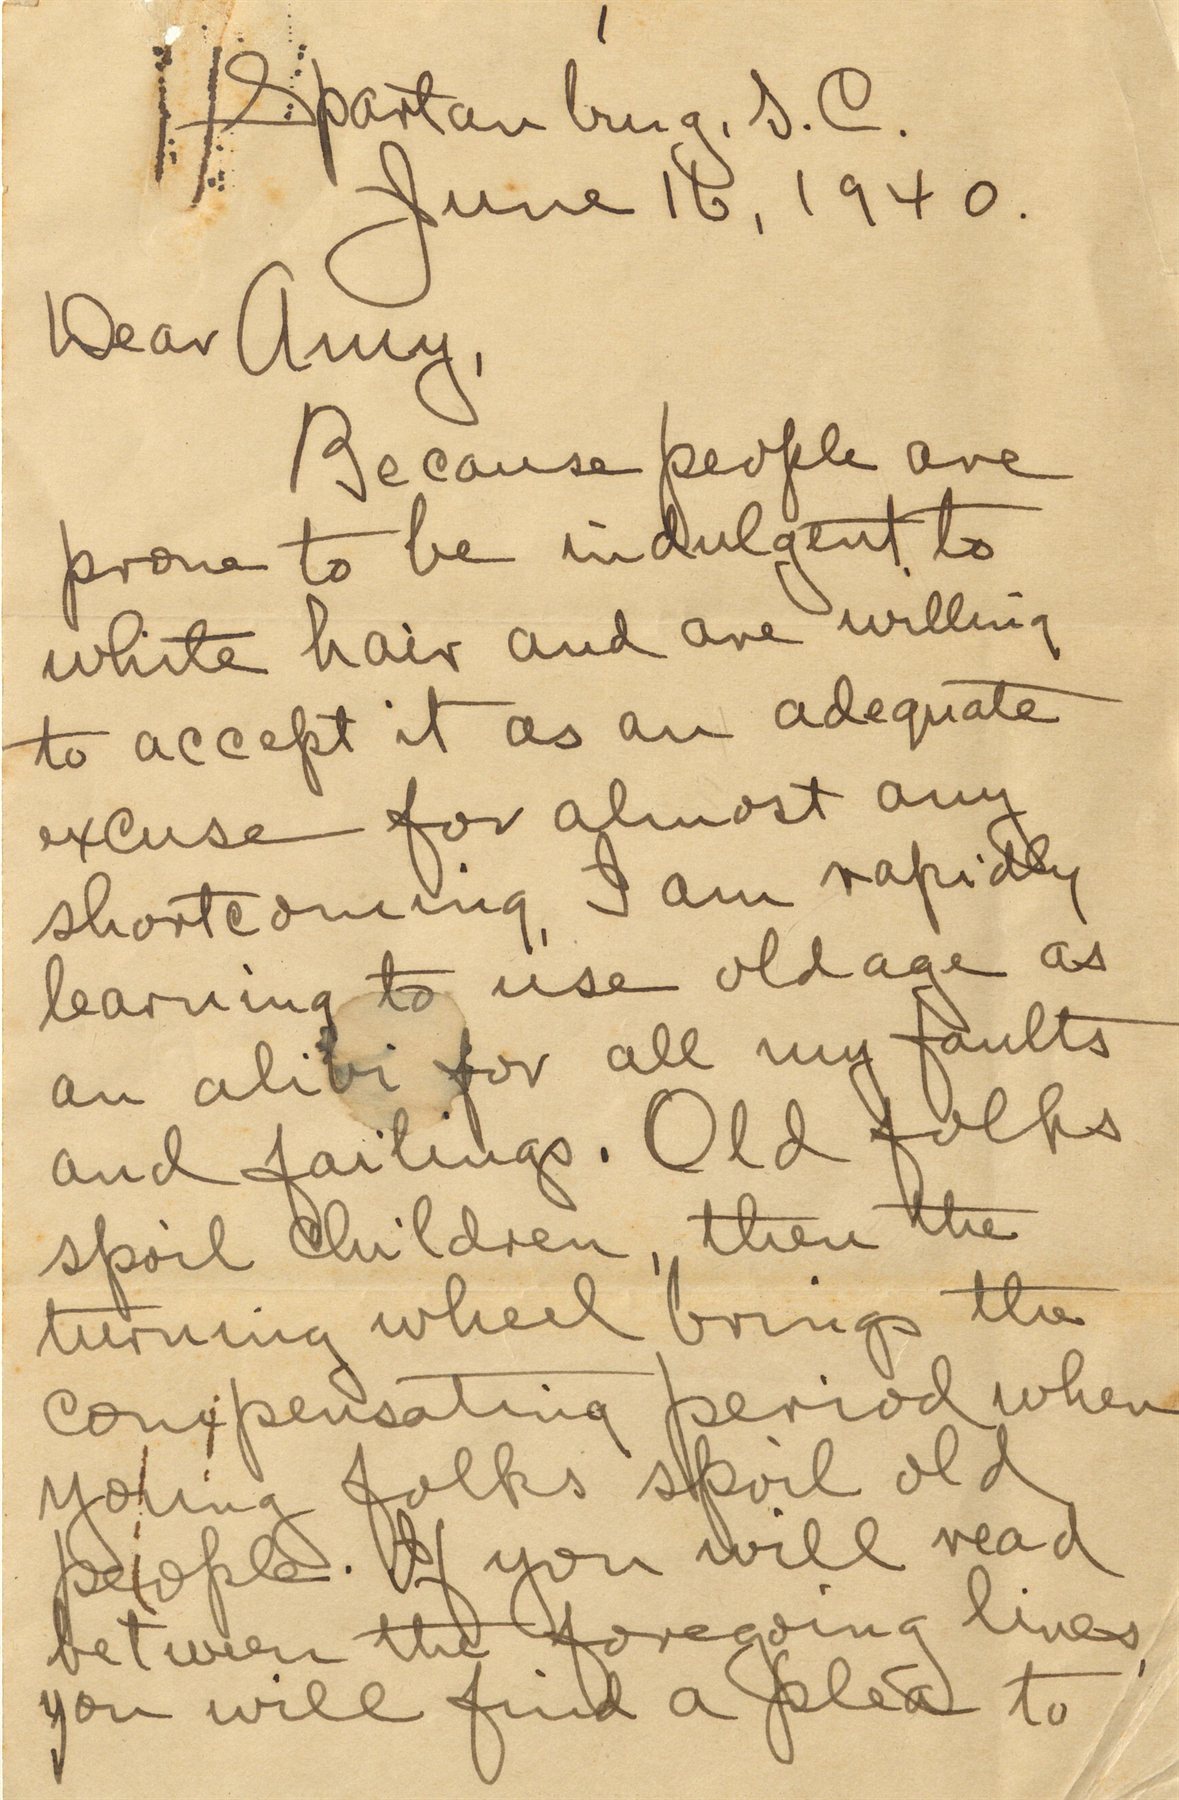 1
Spartanburg, S.C.
June 16, 1940.
Dear Amy,
Because people are
prone to be indulgent to
white hair and are willing
to accept it as an adequate
excuse for almost any
shortcoming, I am rapidly
learning to use old age as
an alibi for all my faults
and failings. Old folks
spoil children, then the
turning wheel brings the
compensating period when
young folks spoil old
people. If you will read
between the foregoing lines,
you will find a plea to